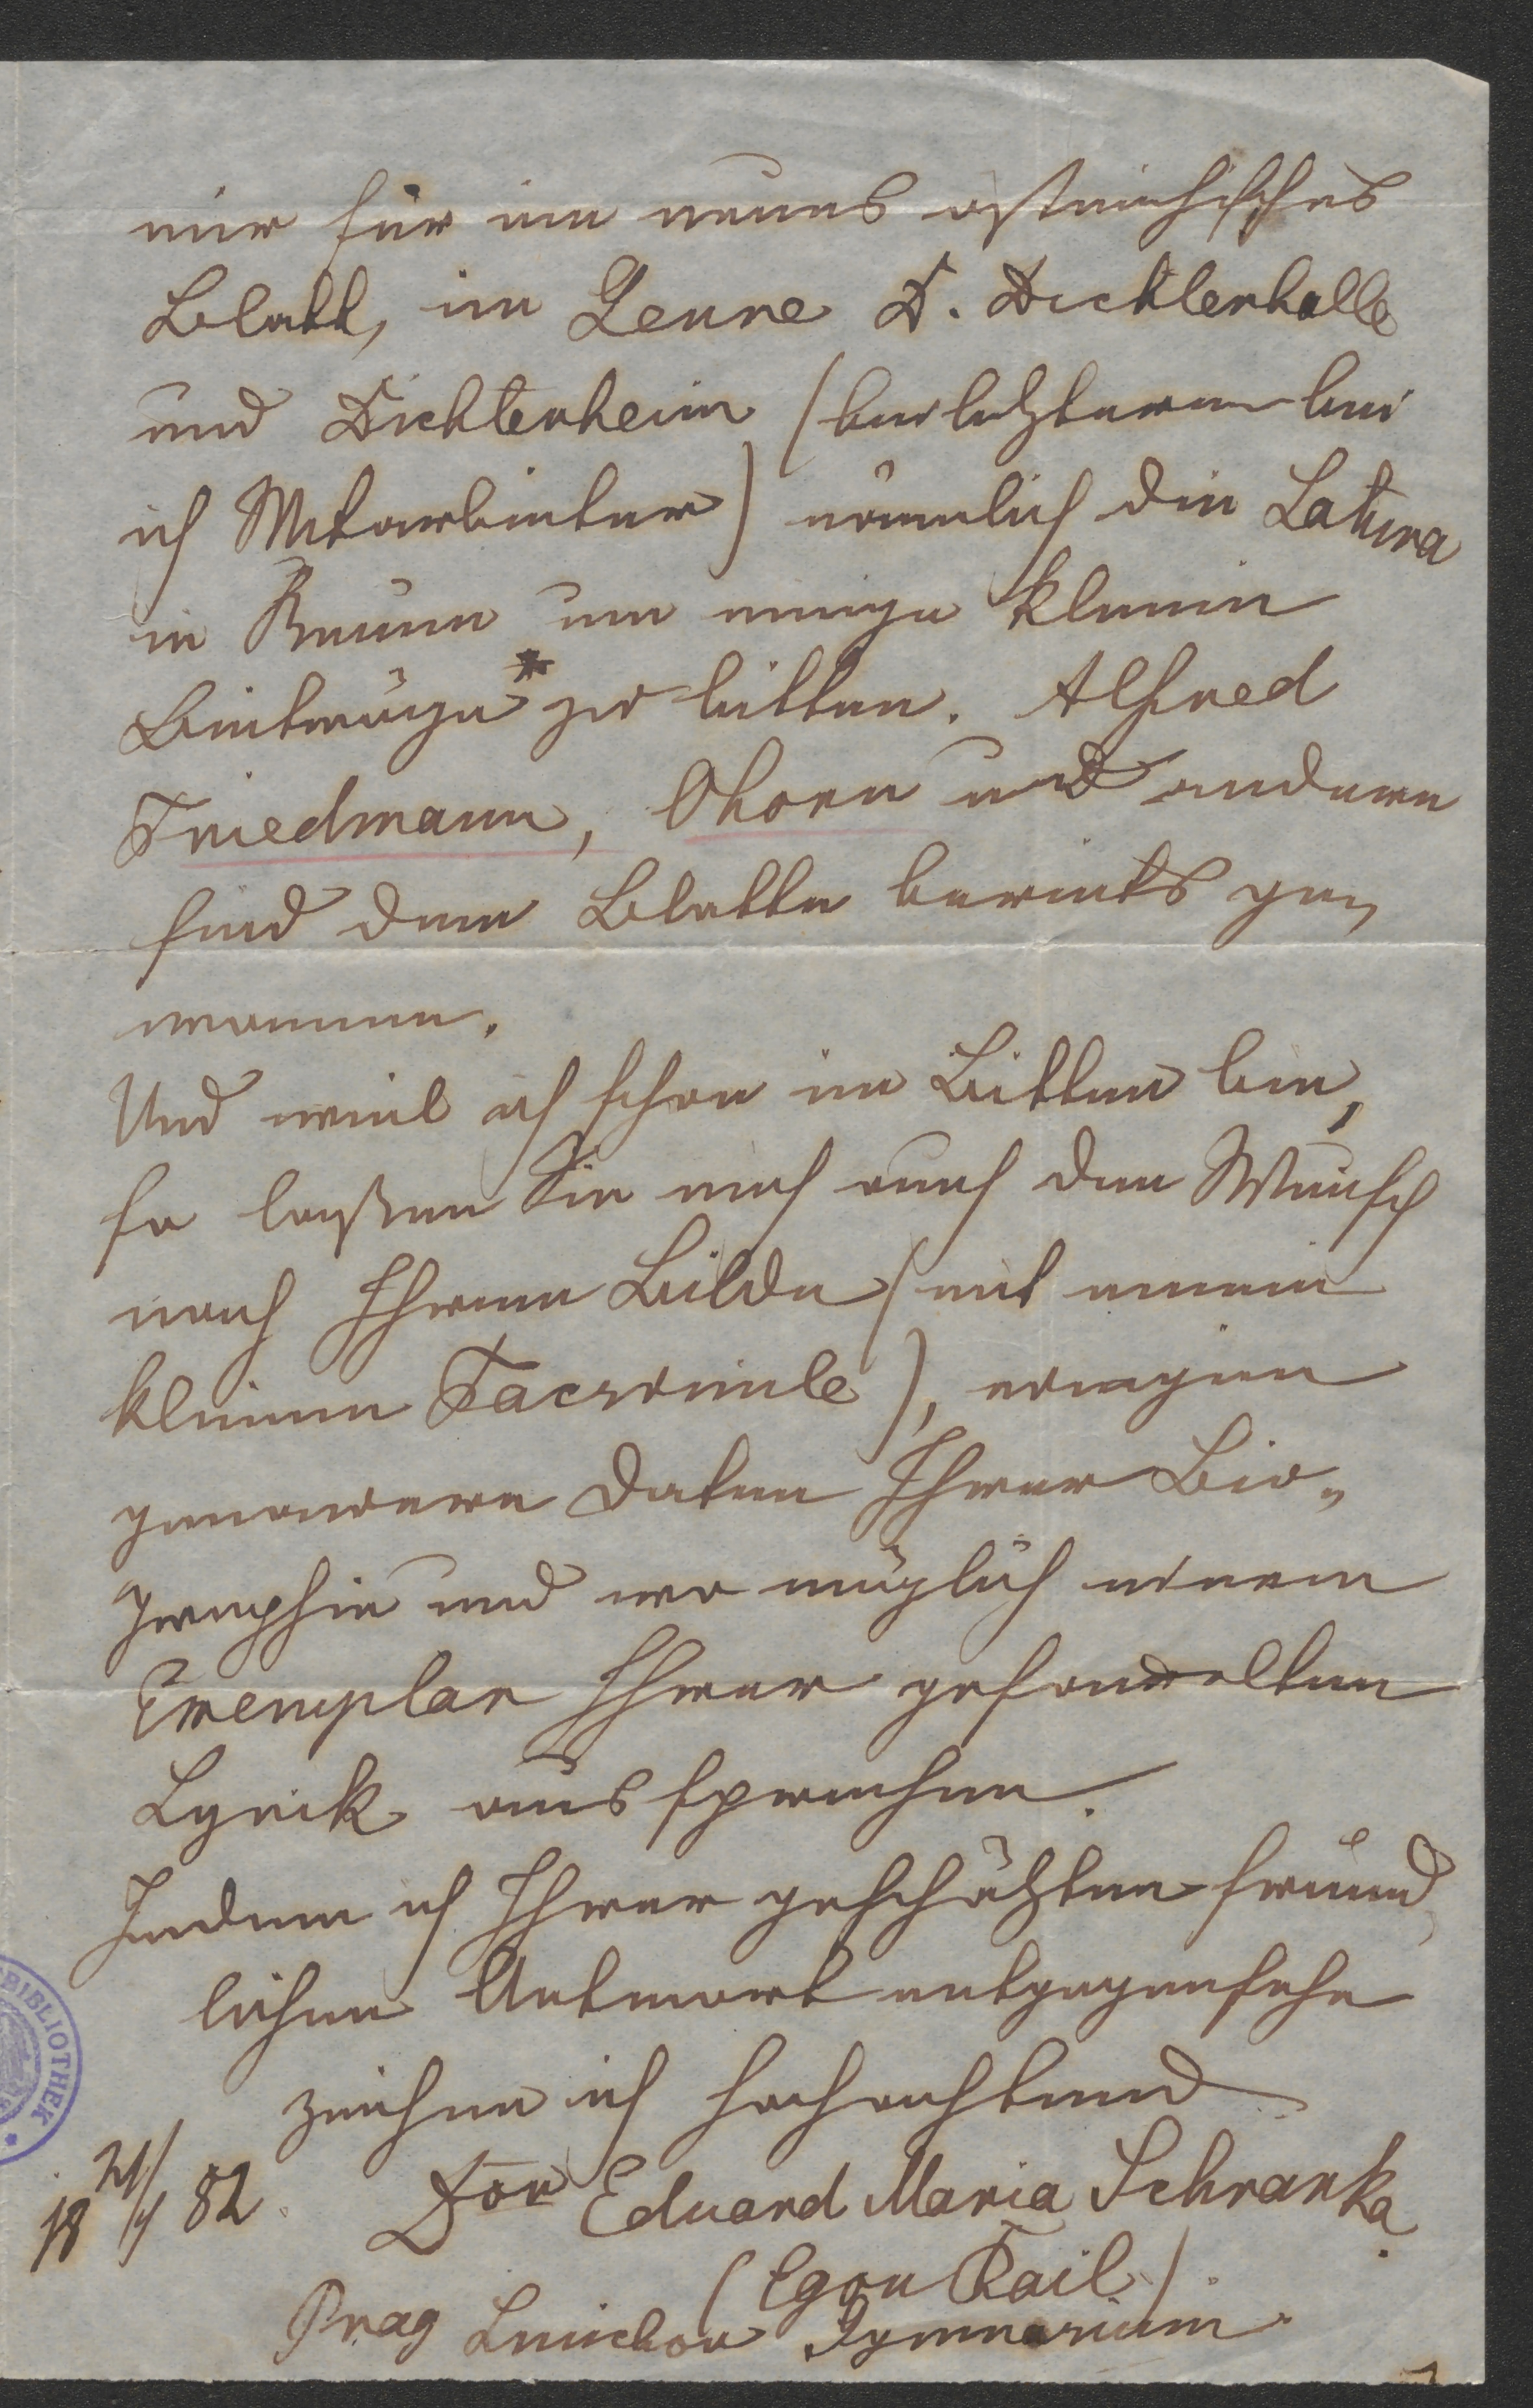 mir für ein neues östreichisches
Blatt, im Genre D. Dichterhalle
und Dichterheim (bei letzterem bin
ich Mitarbeiter) nämlich die Latura
in Bruenn um einige kleine
Beiträge* zu bitten. Alfred
Friedmann, Ohorn und andere
sind dem Blatte bereits ge„
wonnen.
Und weil ich schon im Bitten bin,
so laßen Sie mich auch den Wunsch
nach Ihrem Bilde (mit einem
kleinen Facsimile), einigen
genaueren Daten Ihrer Bio„
graphie und wo möglich einem
Exemplar Ihrer gesammelten
Lyrik aussprechen.
Indem ich Ihrer geschätzten freund„
lichen Antwort entgegensehe
zeichne ich hochachtend
Dor Eduard Maria Schranka
(Egon Rail).
Prag Smichow Gymnasium.
BIBLIOTHEK